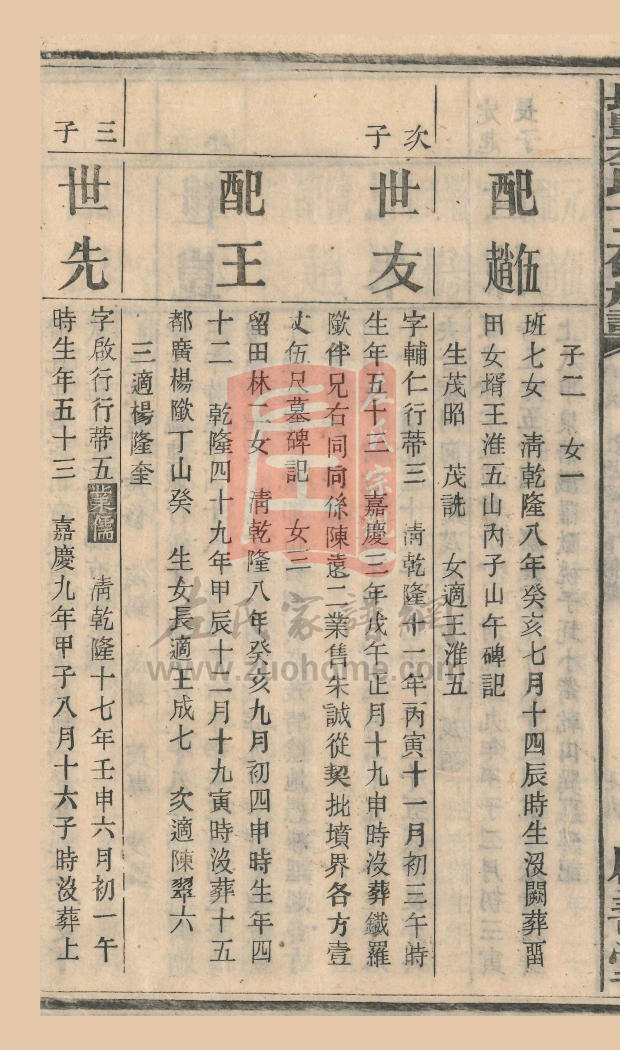 子二　女一
配伍趙
班七女　淸乾隆八年癸亥七月十四辰時生沒闕葬畱
田女壻王淮五山內子山午碑記
生茂昭　茂詵　女適王淮五
次子
世友
字輔仁行蒂三　淸乾隆十一年丙寅十一月初三午時
生年五十三　嘉慶三年戊午正月十九申時沒葬鐵羅
歞伴兄右同向係陳遠二業售朱誠從契批墳界各方壹
丈伍尺墓碑記　女三
配王
畱田林二女　淸乾隆八年癸亥九月初四申時生年四
十二　乾隆四十九年甲辰十二月十九寅時沒葬十五
都廣楊歞丁山癸　生女長適王成七　次適陳翠六
三適楊隆奎
三子
世先
字啟行行蒂五業儒　淸乾隆十七年壬申六月初一午
時生年五十三　嘉慶九年甲子八月十六子時沒葬上
左氏家譜網
www.zuohome.com